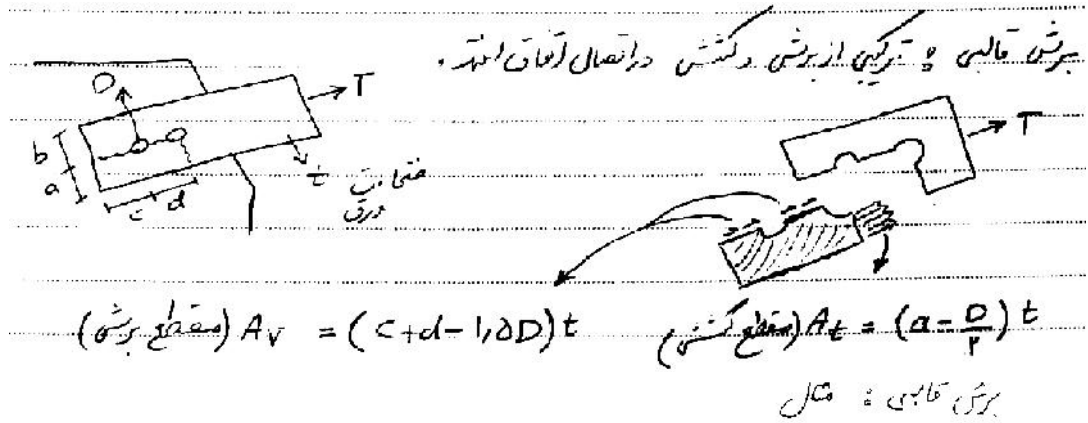 برش قالبی : ترکیبی از برش و کشش در اتصال اتفاق افتد.
D T
b
a
c d t ضخامت
ورق
T
(مقطع برشی) Av = (c+d-1,5D)t (مقطع کششی) At = (a-D/۲)t
برش قالبی : مثال